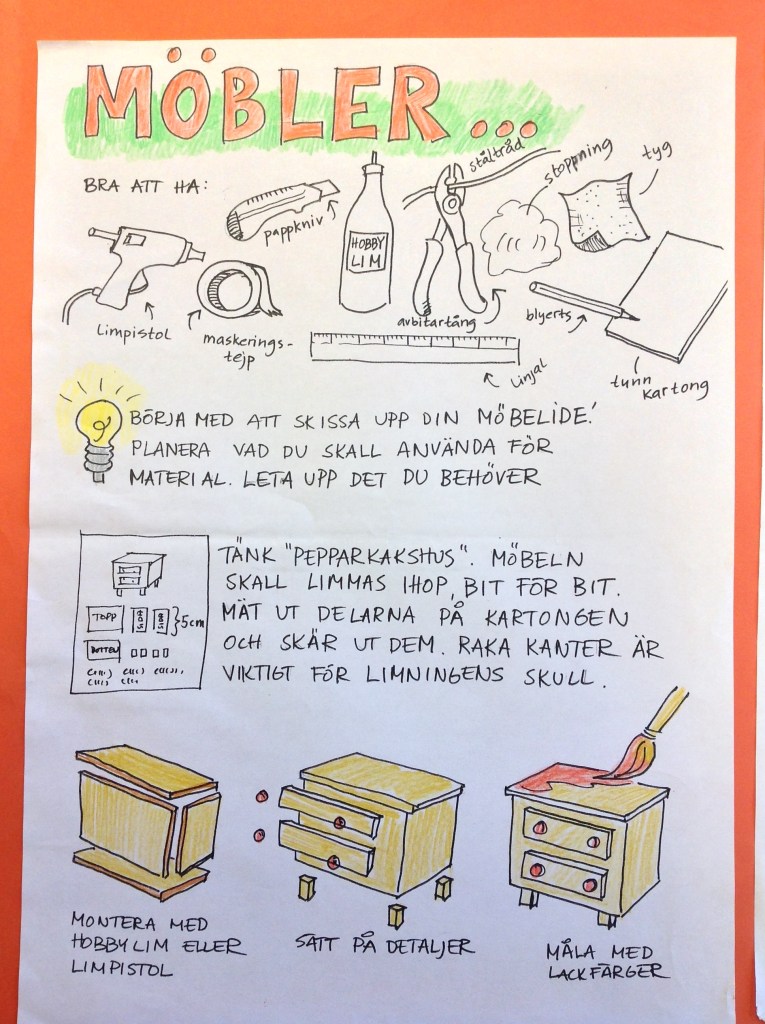 MÖBLER...
BRA ATT HA:
pappkniv
HOBBY
LIM
ståltråd
stoppning
tyg
limpistol
maskerings-
tejp
avbitartång
blyerts
linjal
tunn
kartong
BÖRJA MED ATT SKISSA UPP DIN MÖBELIDE!
PLANERA VAD DU SKALL ANVÄNDA FÖR
MATERIAL. LETA UPP DET DU BEHÖVER
TÄNK "PEPPARKAKSHUS". MÖBELN
SKALL LIMMAS IHOP, BIT FÖR BIT.
MÄT UT DELARNA PÅ KARTONGEN
OCH SKÄR UT DEM. RAKA KANTER ÄR
VIKTIGT FÖR LIMNINGENS SKULL.
TOPP
5cm
BOTTEN
MONTERA MED
HOBBYLIM ELLER
LIMPISTOL
SÄTT PÅ DETALJER
MÅLA MED
LACKFÄRGER